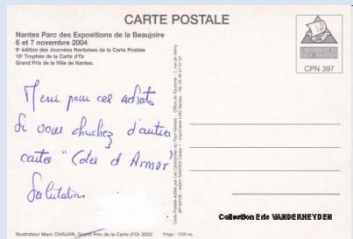 CARTE POSTALE
Nantes Parc des Expositions de la Beaujoire
6 et 7 novembre 2004
9e édition des Journées Nantaises de la Carte Postale
10e Trophée de la Carte d'Or
Grand Prix de la Ville de Nantes.
CPN 397
Merci pour ces achats
Si vous cherchez d'autres
cartes "Cotes d Armor"
Salutations
Collection Eric VANDERHEYDEN
Illustrateur Marc CHALVIN, Grand Prix de la Carte d'Or 2003
tirage : 1000 ex.